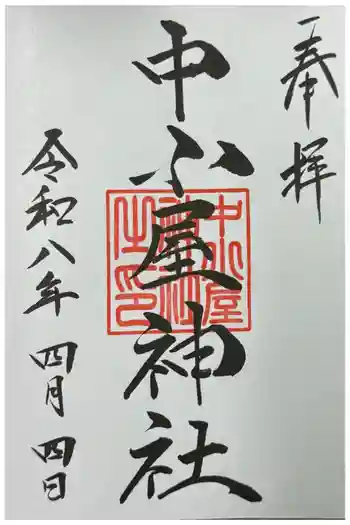 奉拝
中小屋神社
中小屋神社之印
令和八年 四月 四日